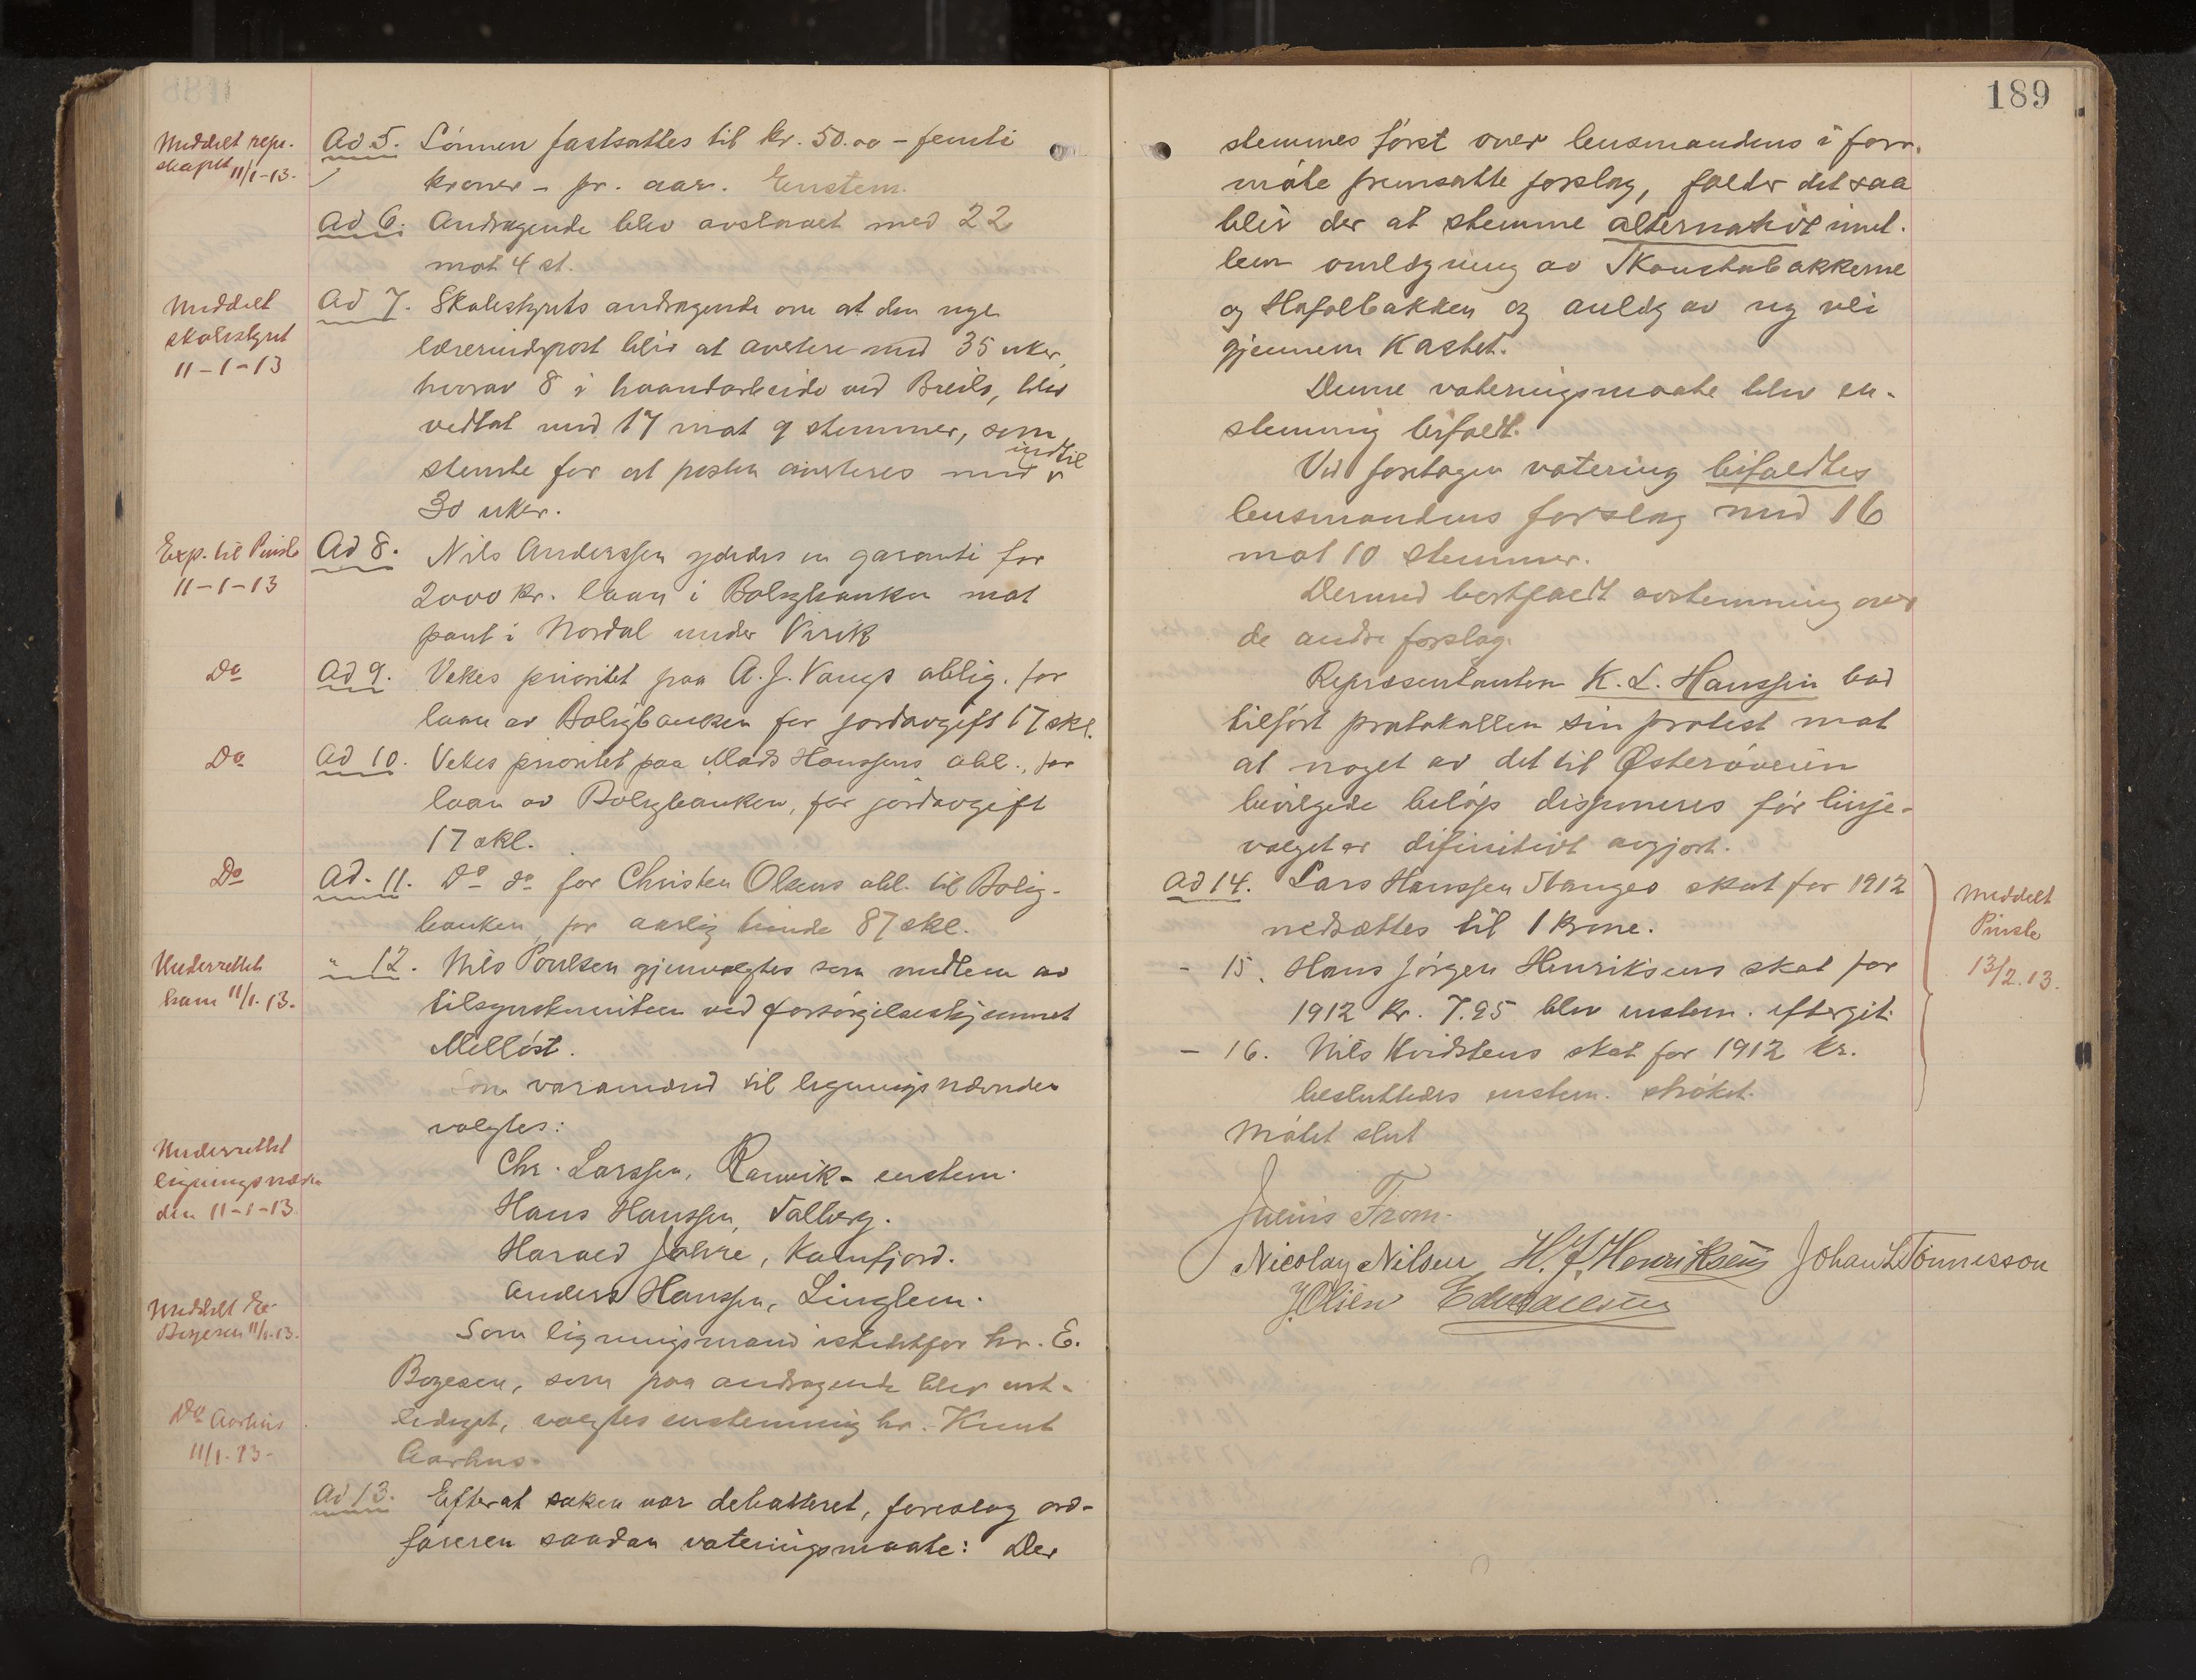 189
Meddelt repr.
skapet 11/1-13.
Ad 5. Lönnen fastsattes til kr. 50.00 - femti
kroner - pr. aar. Enstem.
Ad 6. Andragende blev avslaaet med 22
mot 4 st.
Meddelt
skolestyret
11-1-13
Ad 7. Skolestyrets andragende om at den nye
lærerindepost blir at avertere med 35 uker,
hvorav 8 i haandarbeide ved Breili, blev
vedtat med 17 mot 9 stemmer, som
stemte for at posten averteres med indtil
30 uker.
Exp. til Pinsle
11-1-13
Ad 8. Nils Anderssen ydedes en garanti for
2000 kr. laan i Boligbanken mot
pant i Nordal under Virik
Do
Ad 9. Vekes prioritet paa A. J. Vangs oblig. for
laan av Boligbanken for jordavgift 17 skl.
Do
Ad 10. Vekes prioritet paa Mads Hanssens obl., for
laan av Boligbanken, for jordavgift
17 skl.
Do
Ad. 11. Do do for Christen Olsens obl. til Bolig-
banken, for aarlig tiende 87 skl.
Underrettet
ham 11/1.13.
" 12. Nils Poulsen gjenvalgtes som medlem av
tilsynskomiteen ved forsörgelseshjemmet
Melløst.
Som varamænd til ligningsnævnden
valgtes:
Underrettet
ligningsnævn
den 11-1-13
Chr. Larssen, Ranvik - enstem.
Hans Hanssen, Valberg.
Harald Jahre, Kamfjord.
Anders Hanssen, Lingelem.
Meddelt E.
Bogesen 11/1.13.
Som ligningsmand istedetfor hr. E.
Bogesen, som paa andragende blev ent-
lediget, valgtes enstemmig hr. Knut
Aarhus.
Do Aarhus
11/1.13-
Ad 13. Efterat saken var debatteret, foreslog ord-
föreren saadan voteringsmaate: Der
stemmes först over lensmandens i forr.
möte fremsatte forslag, falder det saa
blir der at stemme alternativt imel.
lem omlægning av Skaustabakkerne
og Hafalbakken og anlæg av ny vei
gjennem Kastet.
Denne voteringsmaate blev en-
stemmig bifaldt.
Ved foretagen votering bifaldtes
lensmandens forslag med 16
mot 10 stemmer.
Dermed bortfaldt avstemning over
de andre forslag.
Repræsentanten K. L. Hanssen bad
tilfört protokollen sin protest mot
at noget av det til Østeröveien
bevilgede belöp disponeres för linje-
valget er difinitivt avgjort.
Ad 14. Lars Hanssen Stanges skat for 1912
nedsættes til 1 krone.
- 15. Hans Jörgen Henriksens skat for
1912 kr. 7.95 blev enstem. eftergit.
- 16. Nils Kvidstens skat for 1912 kr.
besluttedes enstem. ströket.
Meddelt
Pinsle
13/2.13.
Mötet slut
Julius From.
Nicolay Nilsen H. J. Henriksen Johan L Tönnesson
J. Olsen